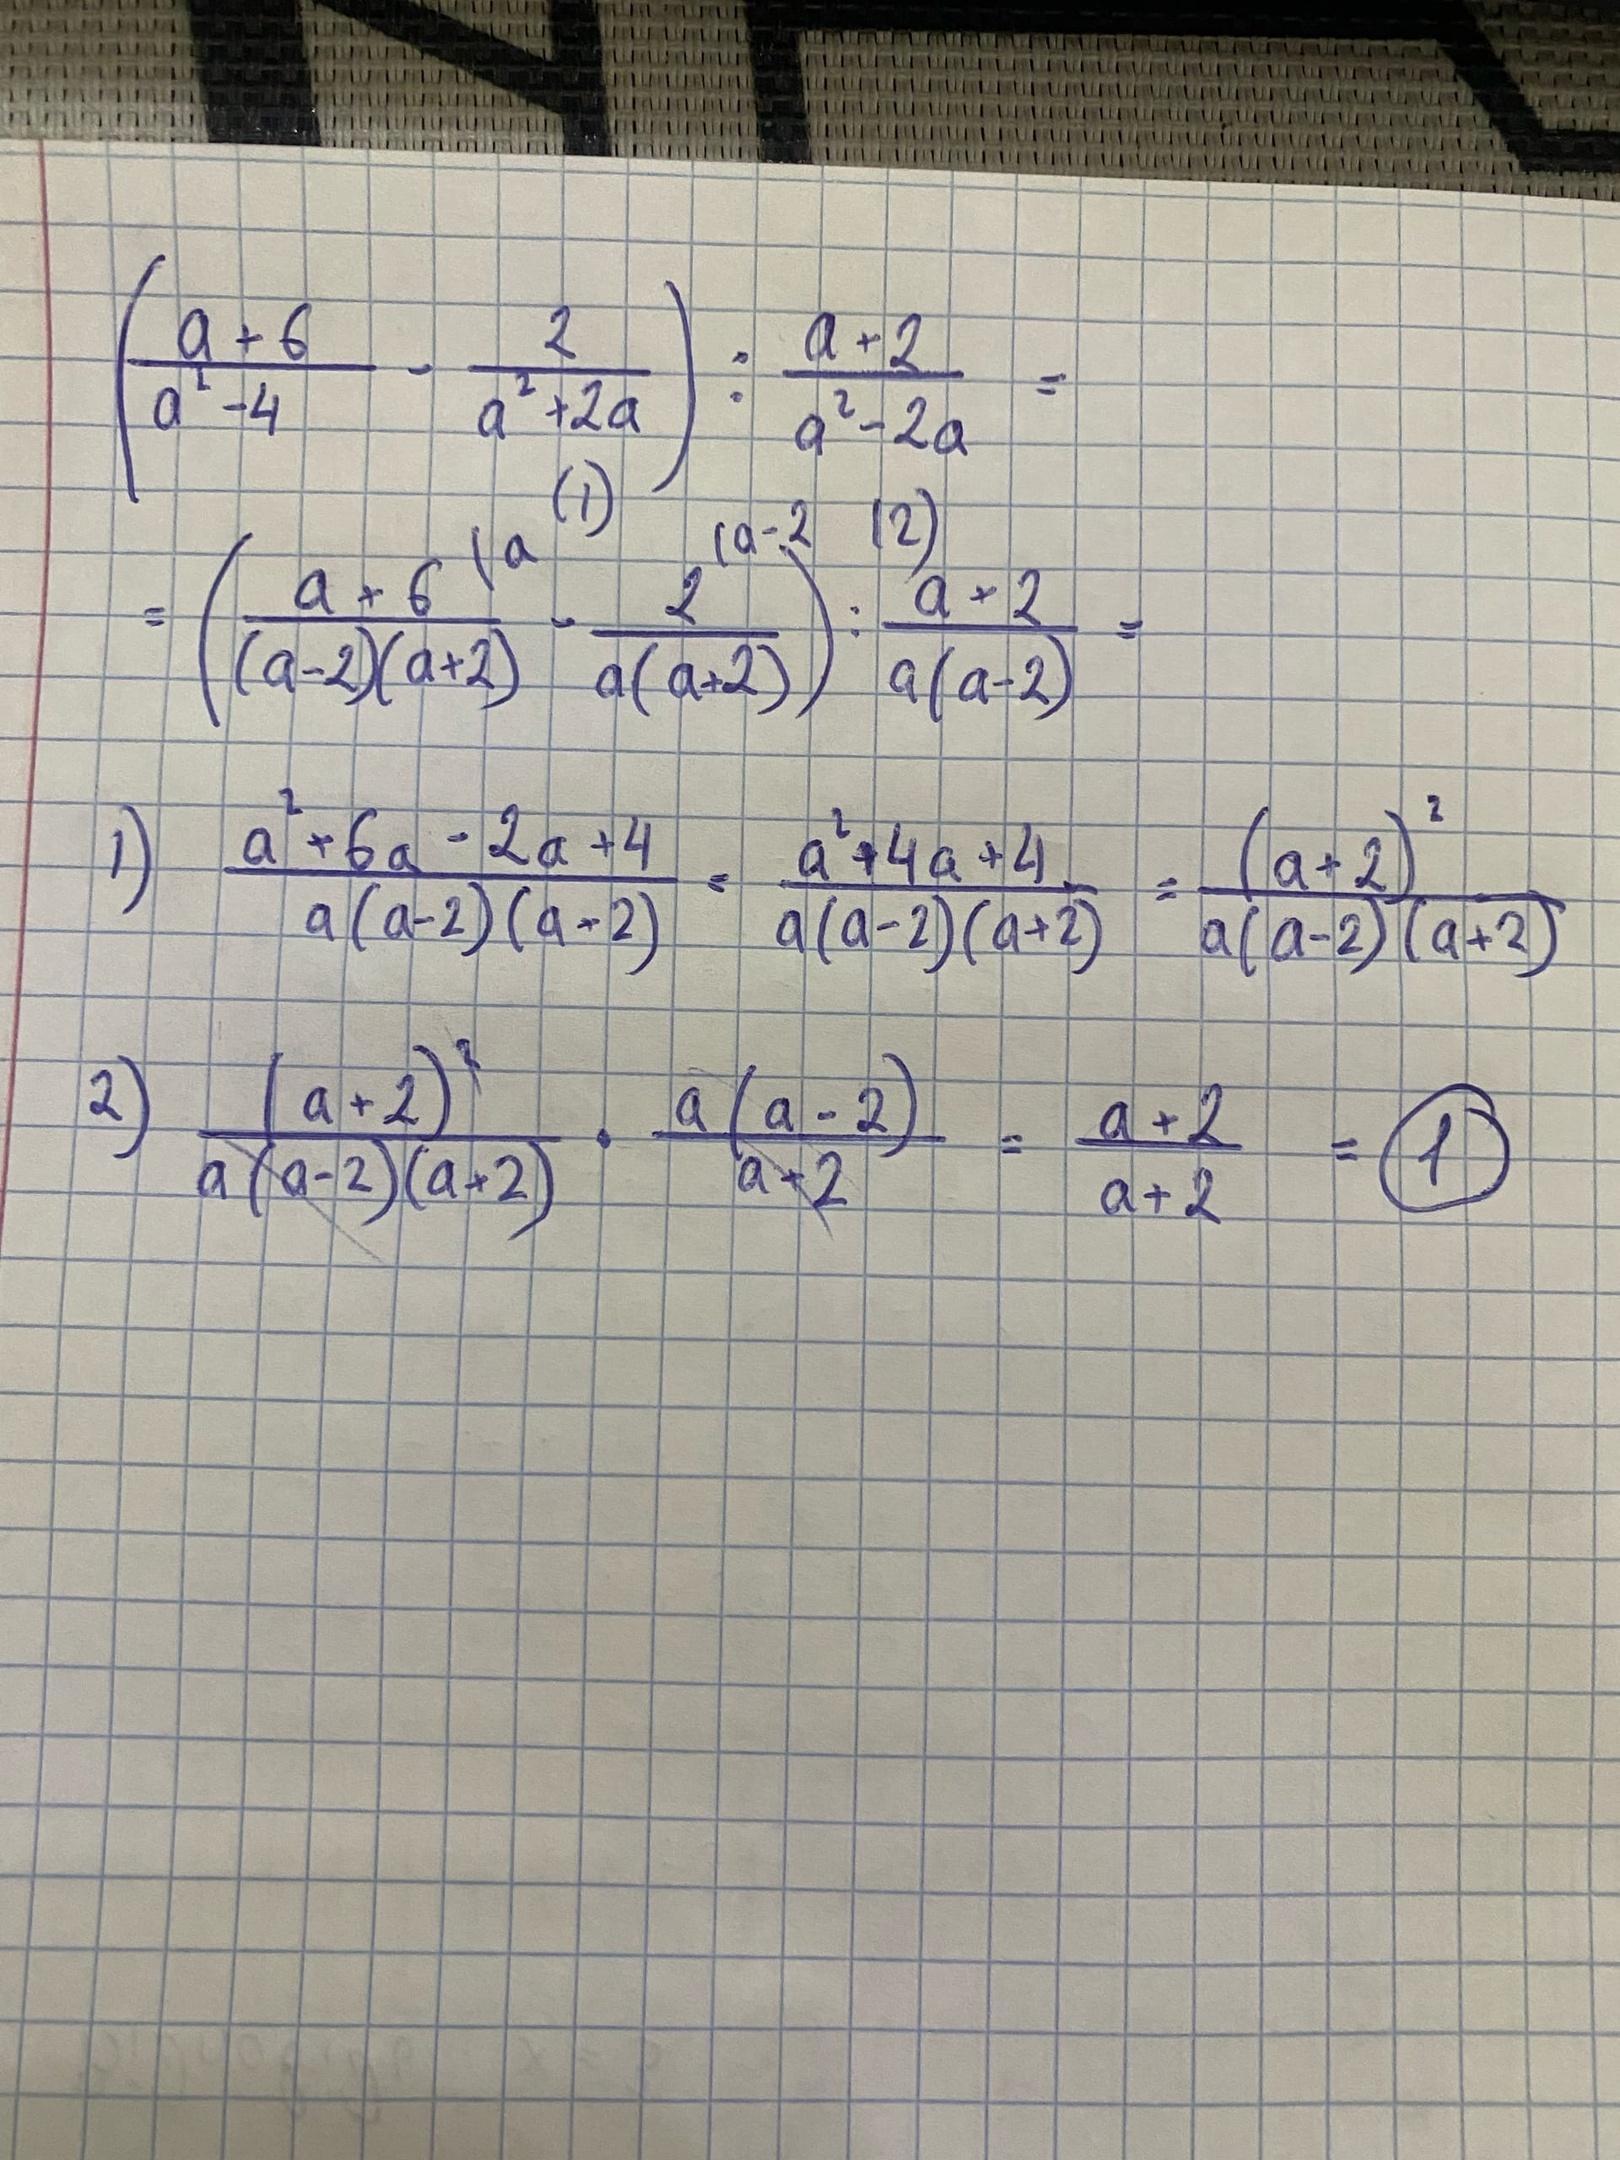 ( (a+6)/(a²-4) - 2/(a²+2a) ) : (a+2)/(a²-2a) =
(1) (2)
= ( (a+6)/((a-2)(a+2)) (a - 2/(a(a+2)) (a-2 ) : (a+2)/(a(a-2)) =
1) (a²+6a-2a+4)/(a(a-2)(a+2)) = (a²+4a+4)/(a(a-2)(a+2)) = (a+2)²/(a(a-2)(a+2))
2) (a+2)²/(a(a-2)(a+2)) · a(a-2)/(a+2) = (a+2)/(a+2) = 1